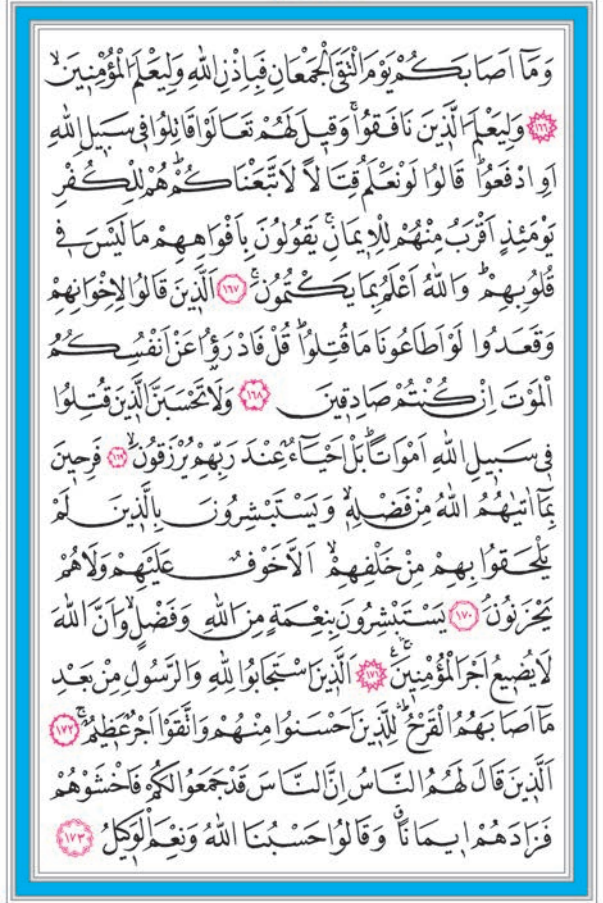 وَمَٓا اَصَابَكُمْ يَوْمَ الْتَقَى الْجَمْعَانِ فَبِاِذْنِ اللّٰهِ وَلِيَعْلَمَ الْمُؤْمِن۪ينَۙ
﴿١٦٦﴾ وَلِيَعْلَمَ الَّذ۪ينَ نَافَقُواۚ وَق۪يلَ لَهُمْ تَعَالَوْا قَاتِلُوا ف۪ي سَب۪يلِ اللّٰهِ
اَوِ ادْفَعُواۜ قَالُوا لَوْ نَعْلَمُ قِتَالًا لَاتَّبَعْنَاكُمْۜ هُمْ لِلْكُفْرِ
يَوْمَئِذٍ اَقْرَبُ مِنْهُمْ لِلْا۪يمَانِۚ يَقُولُونَ بِاَفْوَاهِهِمْ مَا لَيْسَ ف۪ي
قُلُوبِهِمْۜ وَاللّٰهُ اَعْلَمُ بِمَا يَكْتُمُونَۚ ﴿١٦٧﴾ اَلَّذ۪ينَ قَالُوا لِاِخْوَانِهِمْ
وَقَعَدُوا لَوْ اَطَاعُونَا مَا قُتِلُواۜ قُلْ فَادْرَؤُ۫ا عَنْ اَنْفُسِكُمُ
الْمَوْتَ اِنْ كُنْتُمْ صَادِق۪ينَ ﴿١٦٨﴾ وَلَا تَحْسَبَنَّ الَّذ۪ينَ قُتِلُوا
ف۪ي سَب۪يلِ اللّٰهِ اَمْوَاتًاۜ بَلْ اَحْيَٓاءٌ عِنْدَ رَبِّهِمْ يُرْزَقُونَۙ ﴿١٦٩﴾ فَرِح۪ينَ
بِمَٓا اٰتٰيهُمُ اللّٰهُ مِنْ فَضْلِه۪ۙ وَيَسْتَبْشِرُونَ بِالَّذ۪ينَ لَمْ
يَلْحَقُوا بِهِمْ مِنْ خَلْفِهِمْۙ اَلَّا خَوْفٌ عَلَيْهِمْ وَلَا هُمْ
يَحْزَنُونَۢ ﴿١٧٠﴾ يَسْتَبْشِرُونَ بِنِعْمَةٍ مِنَ اللّٰهِ وَفَضْلٍۙ وَاَنَّ اللّٰهَ
لَا يُض۪يعُ اَجْرَ الْمُؤْمِن۪ينَۚۛ ﴿١٧١﴾ اَلَّذ۪ينَ اسْتَجَابُوا لِلّٰهِ وَالرَّسُولِ مِنْ بَعْدِ
مَٓا اَصَابَهُمُ الْقَرْحُۜۛ لِلَّذ۪ينَ اَحْسَنُوا مِنْهُمْ وَاتَّقَوْا اَجْرٌ عَظ۪يمٌۚ ﴿١٧٢﴾
اَلَّذ۪ينَ قَالَ لَهُمُ النَّاسُ اِنَّ النَّاسَ قَدْ جَمَعُوا لَكُمْ فَاخْشَوْهُمْ
فَزَادَهُمْ ا۪يمَانًاۗ وَقَالُوا حَسْبُنَا اللّٰهُ وَنِعْمَ الْوَك۪يلُ ﴿١٧٣﴾